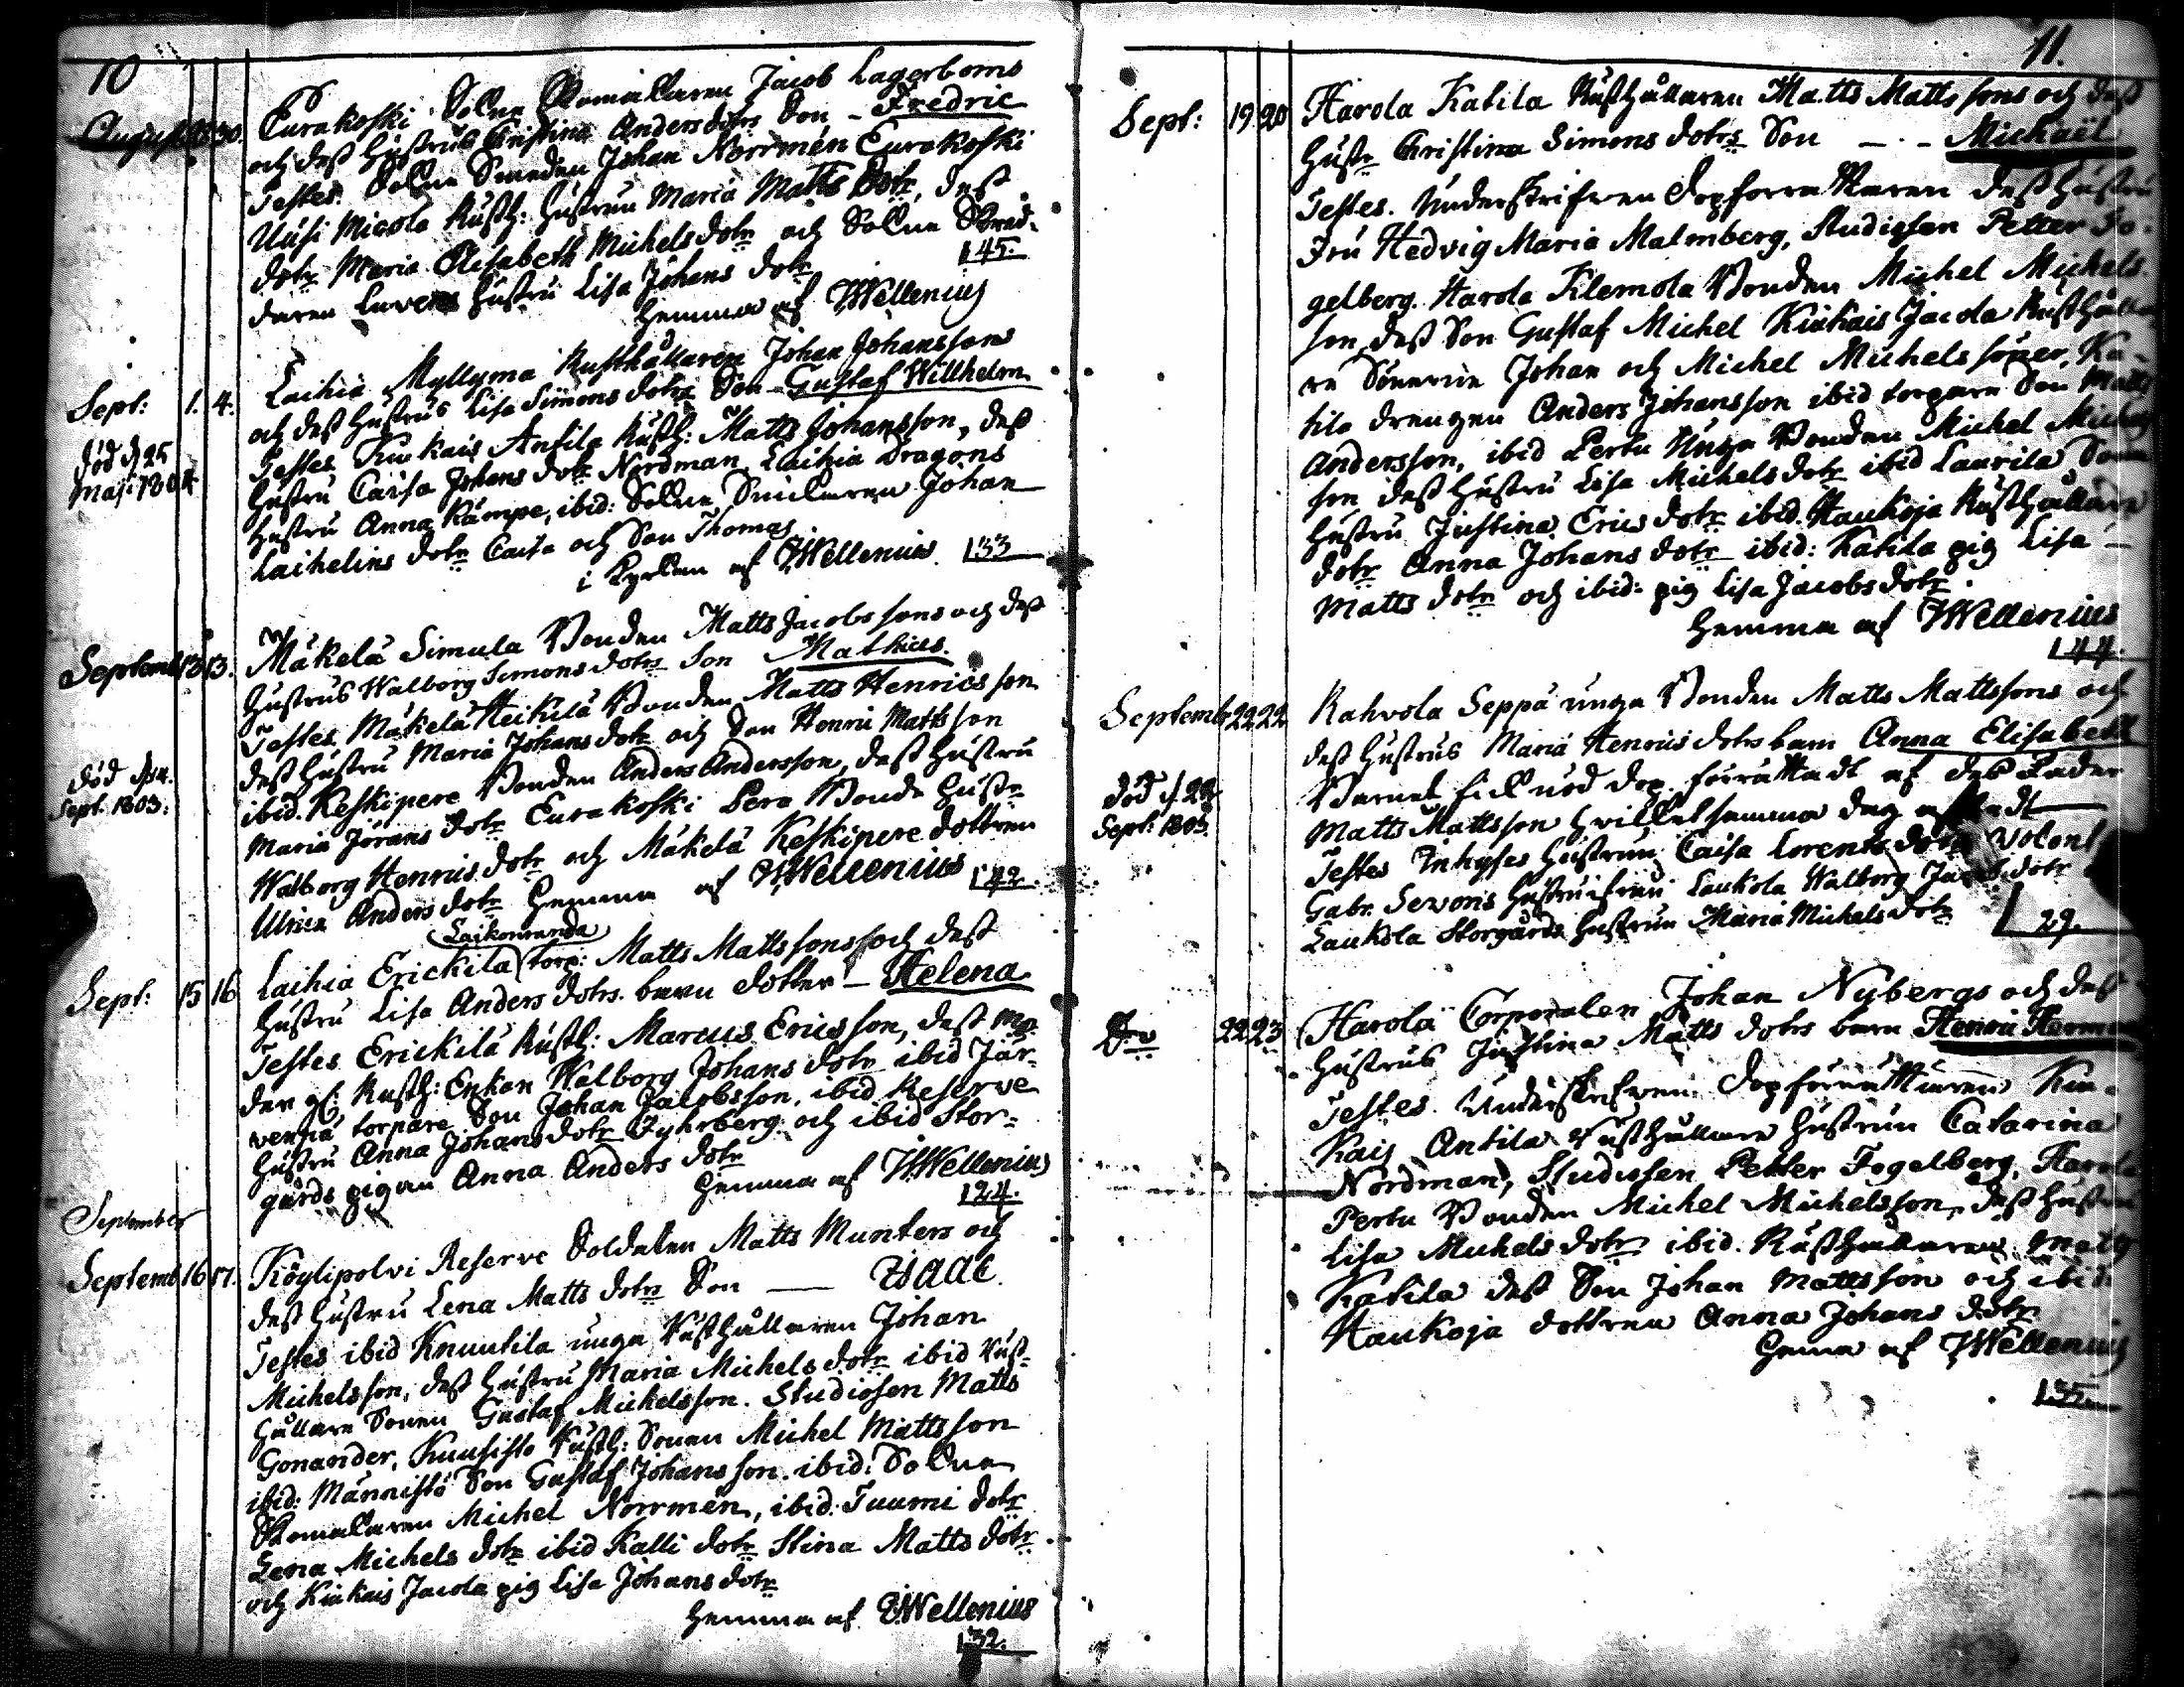 10
August 30. Eurakoski Sokne Skomakaren Jacob Lagerboms
och dess Hustrus Christina Anders dotrs Son - Fredric
Testes. Sokne Smeden Johan Norrmén Eurakoski
Uusi Micola Rusth: Hustrun Maria Matts Dotr, dess
dotr Maria Elisabeth Michels dotr och Sokne Skräd-
daren Hustru Lisa Johans dotr
145.
hemma af JWellenius
Sept: 1. 4. Laihia Myllyma Rusthållaren Johan Johanssons
och dess Hustrus Lisa Simons dotrs Son - Gustaf Willhelm
död d. 25
Maji 1804
Testes Kiukais Antila Rusth: Matts Johansson, dess
Hustru Caisa Johans dotr Nordman, Laihia Dragons
Hustru Anna Kämpe, ibid: Sokne Snickaren Johan
Laihelins dotr Caisa och Son Thomas
i Kyrkan af JWellenius 133
Septemb 13 13. Mäkelä Simula Bonden Matts Jacobssons och dess
Hustrus Walborg Simons dotrs Son Mathias.
Testes, Mäkelä Heikilä Bonden Matts Henricsson
dess Hustru Maria Johans dotr och Son Henric Mattsson
död
Sept. 1803:
ibid. Keskipere Bonden Anders Andersson, dess Hustru
Maria Jörans dotr Eurakoski Pero Bonde Hustr
Walborg Henrics dotr och Mäkelä Keskipere dottren
Ulrica Anders dotr Hemma af JWellenius
142
Sept: 15 16 Laihia Erickila torp: Matts Mattssons och dess
Hustru Lisa Anders dotrs. barn dotter - Helena
Testes Erickilä Rusth: Marcus Ericsson, dess Mo-
der gl: Rusth: Enkan Walborg Johans dotr ibid Jär-
venpä torpare Son Johan Jacobsson, ibid. Reserve
Hustru Anna Johans dotr Fyhrberg och ibid Stor-
gårds pigan Anna Anders dotr
hemma af JWellenius
124.
September
Septemb 16 17. Köylipolvi Reserve Soldaten Matts Munters och
dess Hustru Lena Matts dotrs Son — Isaac
Testes ibid Knuutila unga Rusthållaren Johan
Michelsson, dess Hustru Maria Michels dotr ibid Rust-
hållare Sonen Gustaf Mickelsson. Studiosen Matts
Gonander, Kuusisto Rusth: Sonen Michel Mattsson
ibid: Männistö Son Gustaf Johansson. ibid: Sokne
Skomakaren Michel Norrmén, ibid: Tuumi dotr
Lena Michels dotr ibid Kalli dotr Stina Matts dotr
och Kiukais Jacola pig Lisa Johans dotr
Hemma af JWellenius
132.
11.
Sept: 19 20 Harola Katila Rusthållaren Matts Mattssons och dess
Hustr Christina Simons dotrs Son - · - Michaël
Testes. Underskrifven Dopförrättaren dess Hustru
Fru Hedvig Maria Malmberg, Studiosen Petter Fo-
gelberg. Harola Klemola Bonden Michel Michels-
son, dess Son Gustaf Michel Kiukais Jacola Rusthålla-
re Sönerne Johan och Michel Michels söner, Ka-
tila drengen Anders Johansson ibid torpare Son Matts
Andersson, ibid Pertu Unga Bonden Michel Michels-
son dess Hustru Lisa Michels dotr ibid Laurila Sonen
Hustru Justina Erics dotr ibid. Haukoja Rusthållare
dotr Anna Johans dotr ibid: Katila pig Lisa
Matts dotr och ibid: pig Lisa Jacobs dotr
Hemma af JWellenius
144.
Septembr 22 22 Kahvola Seppä unga Bonden Matts Mattssons och
dess Hustrus Maria Henrics dotrs barn Anna Elisabeth
Barnet fick nöd dop förrättadt af des Fader
död d. 22
Sept: 1803.
Matts Mattsson hvilket samma dag
Testes Inhyses Hustrun Caisa Lorents dotr Volont
Gabr. Sevons Hustru Laukola Walborg Jacobs dotr
Laukola Storgårds Hustrun Maria Michels dotr
29.
Dito 22 23 Harola Corporalen Johan Nybergs och dess
Hustrus Justina Matts dotrs barn Henric Herman
Testes. Underskrefven Dopförrättaren Kiu-
kais Antila Rusthållare Hustrun Catarina
Nordman, Studiosen Petter Fogelberg, Harola
Pertu Bonden Michel Michelsson, dess Hustru
Lisa Michels dotr ibid. Rusthållaren Matts
Katila dess Son Johan Mattsson och ibid:
Haukoja dottren Anna Johans dotr
Hema af JWellenius
135.